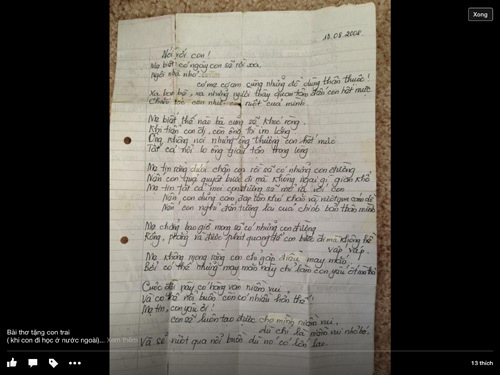 Xong
10.08.2008.
Nói với con!
Mẹ biết có ngày con sẽ rời xa,
Ngôi nhà nhỏ
có mẹ cơm cùng những đồ dùng thân thuộc!
Xa bạn bè, xa những người thầy quan tâm đến con hết mức
Chiều con như con ruột của mình.
Mẹ biết thế nào bà cũng sẽ khóc ròng.
Khi tiễn con đi, còn ông thì im lặng
Ông không nói nhưng ông thương con hết mức
Tất cả nỗi lo ông giấu tận trong lòng
Mẹ tin rằng dưới chân con rồi sẽ có những con đường
Nên con quả quyết bước đi mà không ngại gì gian khổ
Mẹ tin tất cả mọi con đường sẽ mở ra với con
Nên, con đừng cam chịu khó khăn và
Nên con nghĩ đến tương lai của chính bản thân mình
Mẹ chẳng bao giờ mong sẽ có những con đường
Rộng, phẳng và được phát quang để con bước đi mà không hề
vấp váp.
Mẹ không mong rằng con chỉ gặp điều may mắn.
Bởi có thể chúng may mắn này chỉ làm con yếu ớt mà thôi
Cuộc đời này có hàng vạn niềm vui
Và có cả nỗi buồn còn có nhiều hơn thế!
Mẹ tin, con yêu ơi!
con sẽ luôn tạo được cho mình niềm vui.
dù chỉ là niềm vui nhỏ bé.
Và sẽ vượt qua nỗi buồn dù nó có lớn lao.
Bài thơ tặng con trai
( khi con đi học ở nước ngoài)... Xem thêm
13 thích